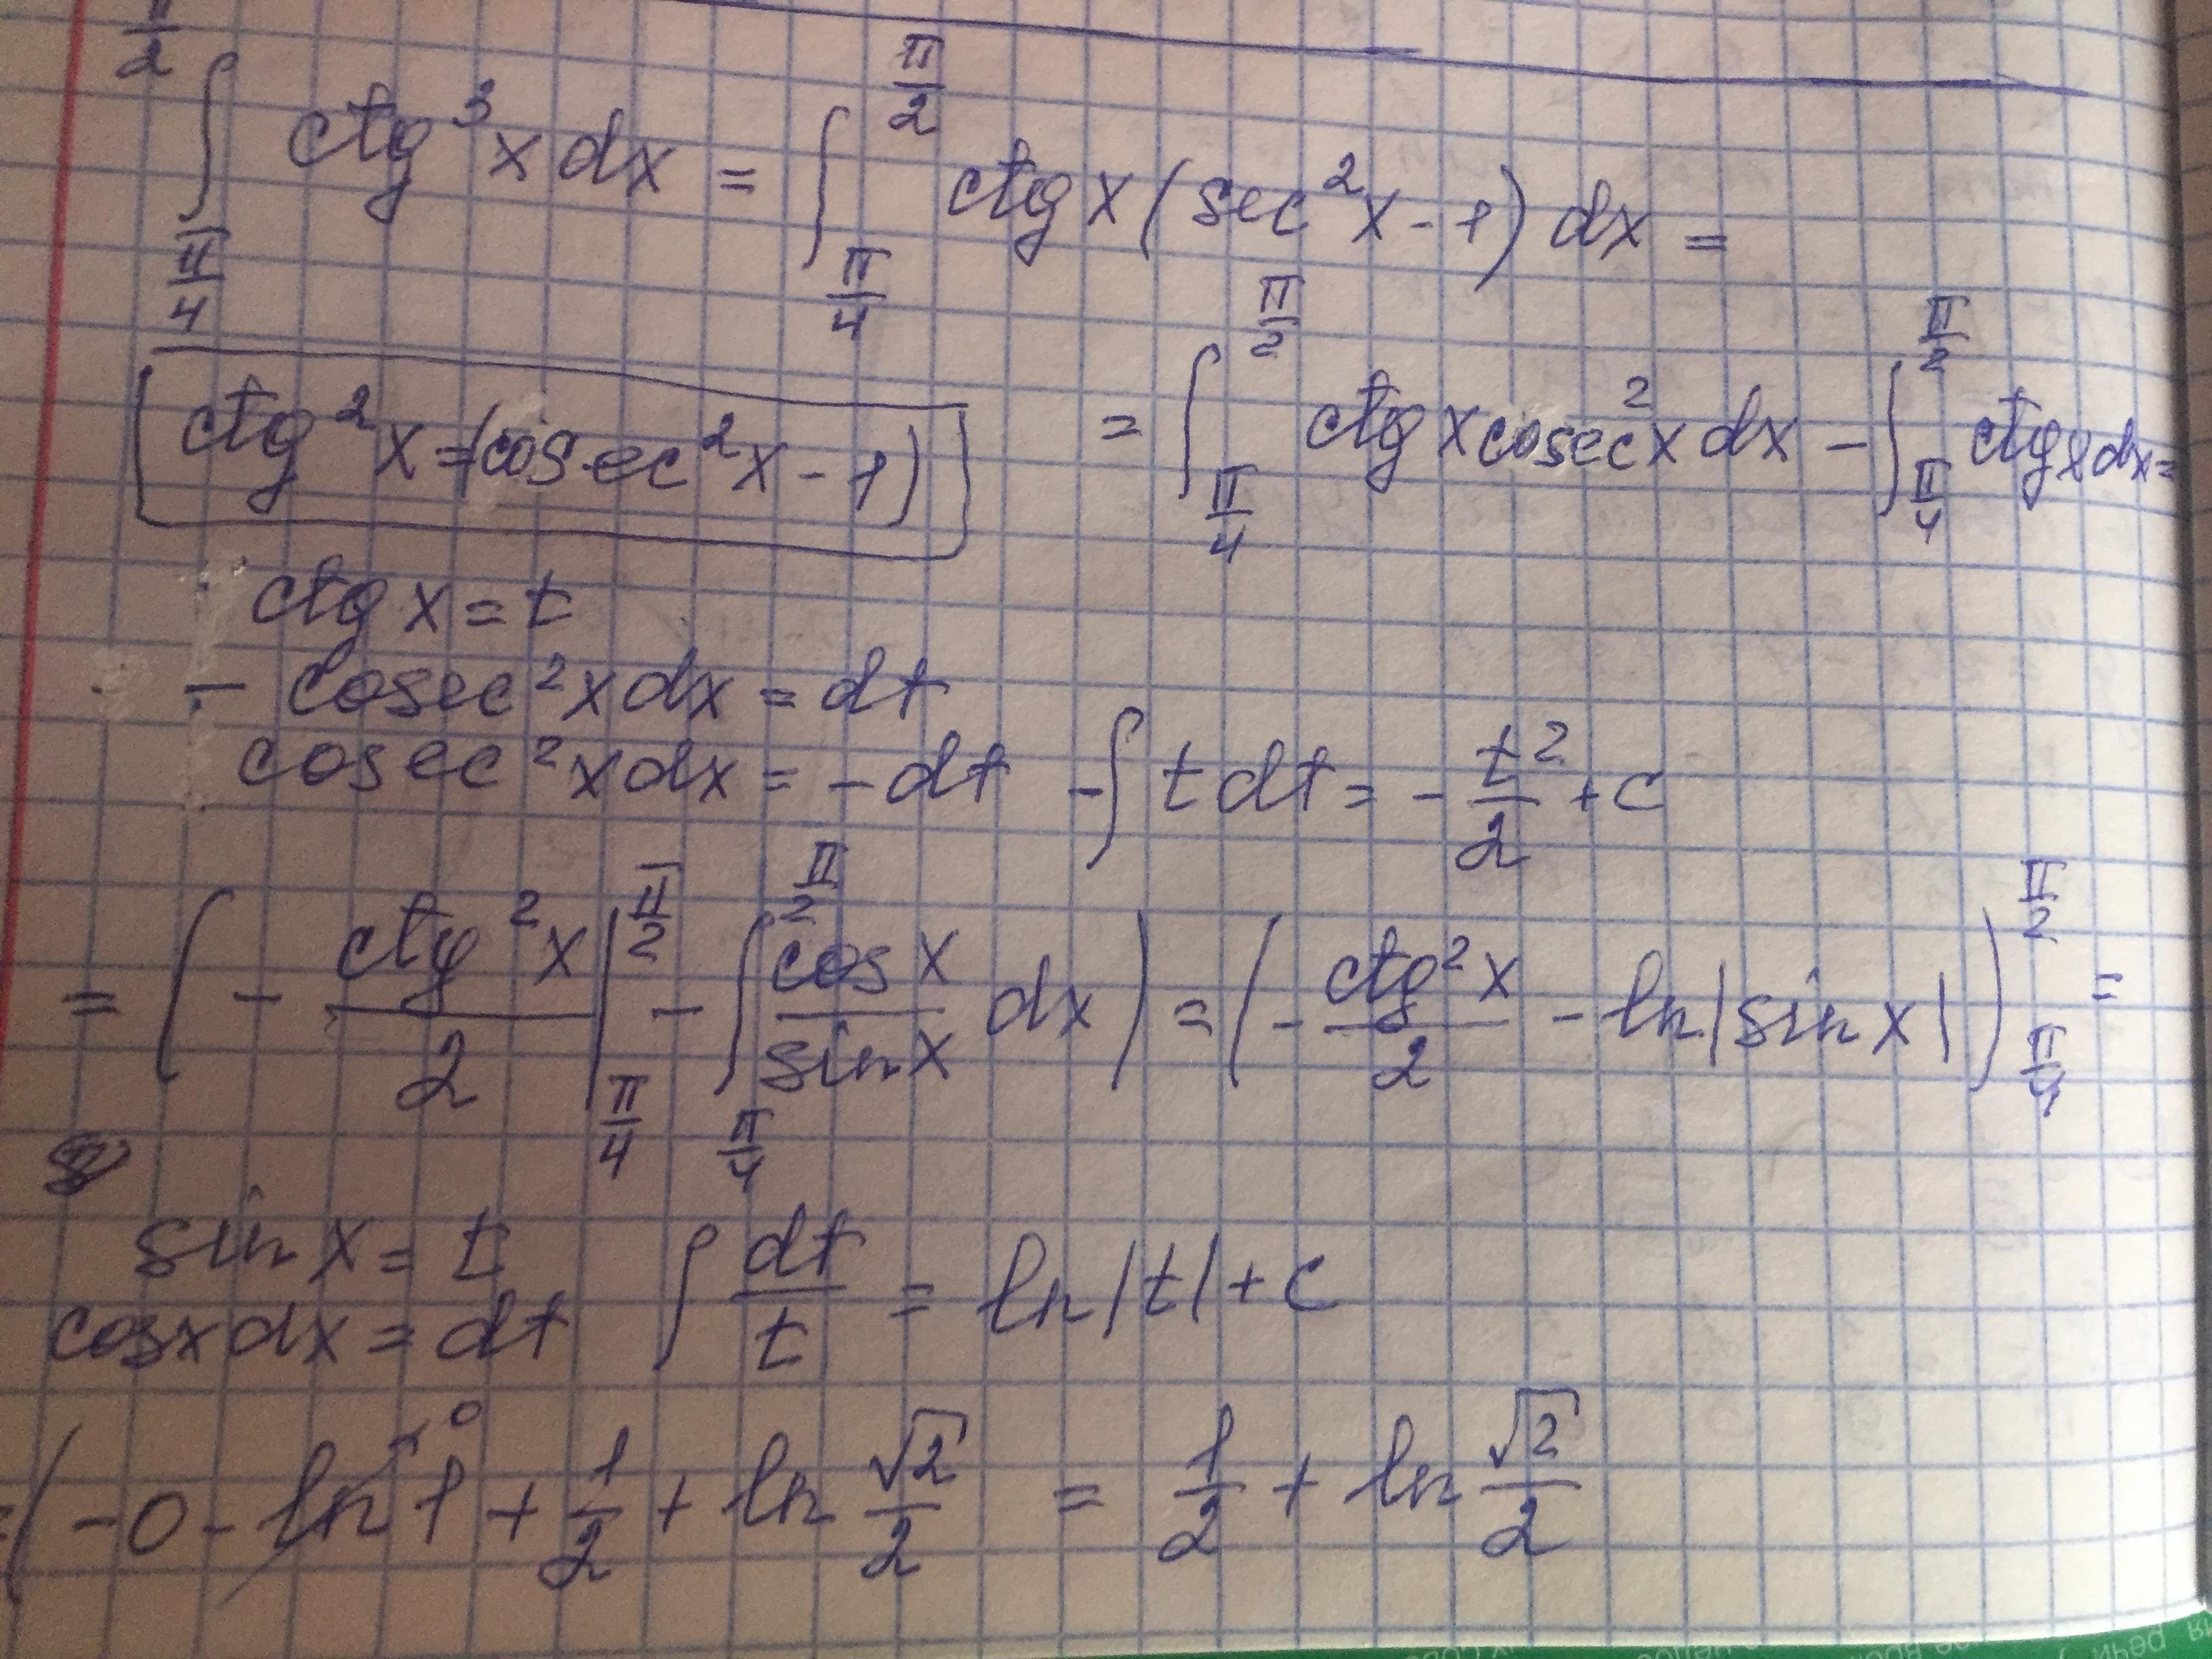 ∫_{π/4}^{π/2} ctg³x dx = ∫_{π/4}^{π/2} ctg x (sec²x - 1) dx =
[ctg²x = (cosec²x - 1)] = ∫_{π/4}^{π/2} ctg x cosec²x dx - ∫_{π/4}^{π/2} ctg x dx =
ctg x = t
- cosec²x dx = dt
cosec²x dx = - dt - ∫ t dt = - t²/2 + c
= (- ctg²x/2 |_{π/4}^{π/2} - ∫_{π/4}^{π/2} cos x/sin x dx) = (- ctg²x/2 - ln|sin x|)_{π/4}^{π/2} =
sin x = t ∫ dt/t = ln|t| + c
cos x dx = dt
= (- 0 - ln 1 ↗0 + 1/2 + ln √2/2 = 1/2 + ln √2/2
речи